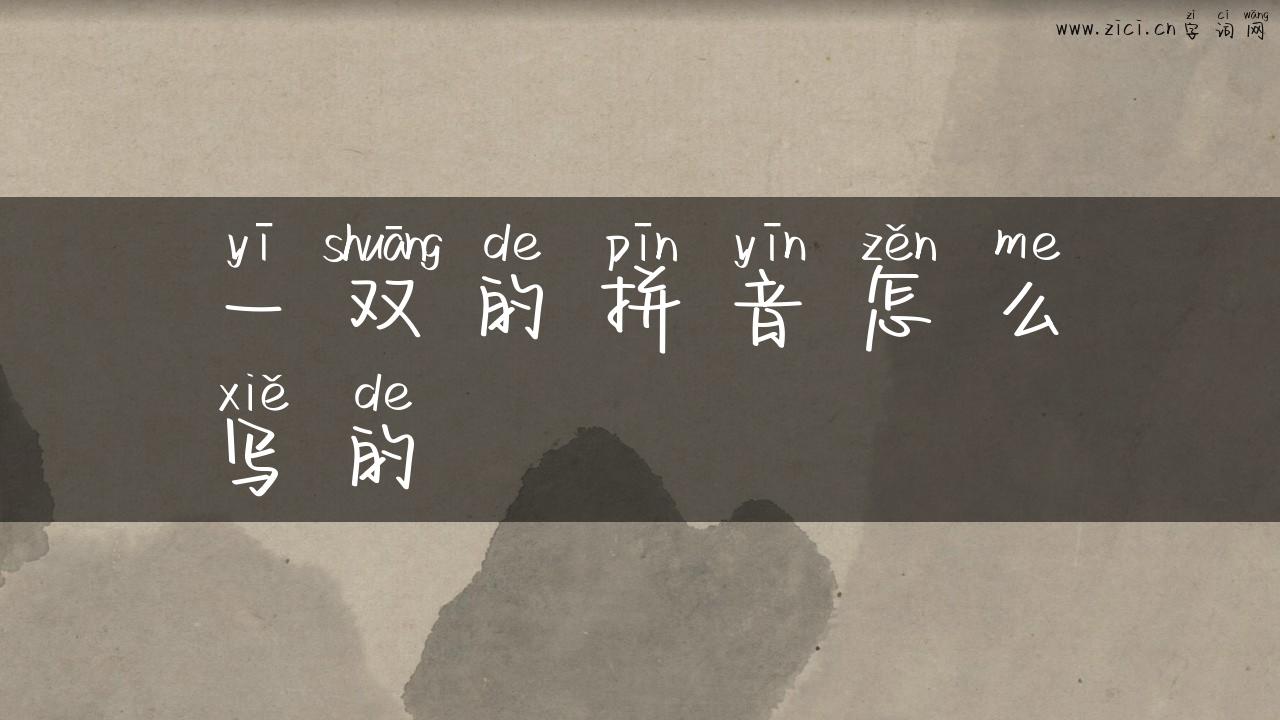 zì cí wǎng
www.zici.cn 字 词 网
yī shuāng de pīn yīn zěn me
一 双 的 拼 音 怎 么
xiě de
写 的